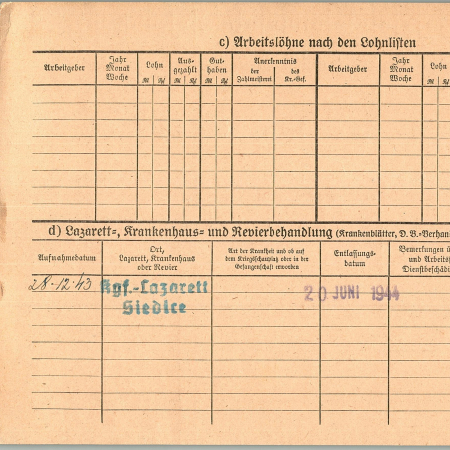 c) Arbeitslöhne nach den Lohnlisten
Arbeitgeber Jahr Monat Woche Lohn Aus- gezahlt Gut- haben Anerkenntnis Arbeitgeber Jahr Monat Woche Lohn
RM Rpf RM Rpf RM Rpf der Zahlmeisterei des Kr.-Gef. RM Rpf
d) Lazarett-, Krankenhaus- und Revierbehandlung (Krankenblätter, D. B.-Verhan
Aufnahmedatum Ort, Lazarett, Krankenhaus oder Revier Art der Krankheit und ob auf dem Kriegsschauplatz oder in der Gefangenschaft erworben Entlassungs- datum Bemerkungen ü und Arbeits Dienstbeschädi
28.12.43 Kgf.-Lazarett 20 JUNI 1944
Siedlce